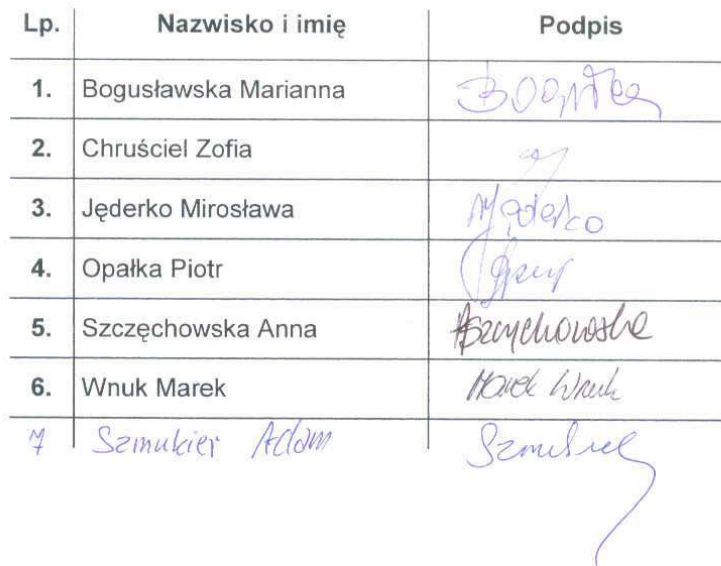 Lp. Nazwisko i imię Podpis
1. Bogusławska Marianna
2. Chruściel Zofia
3. Jęderko Mirosława MJęderko
4. Opałka Piotr
5. Szczęchowska Anna
6. Wnuk Marek Marek Wnuk
7 Szmukier Adam